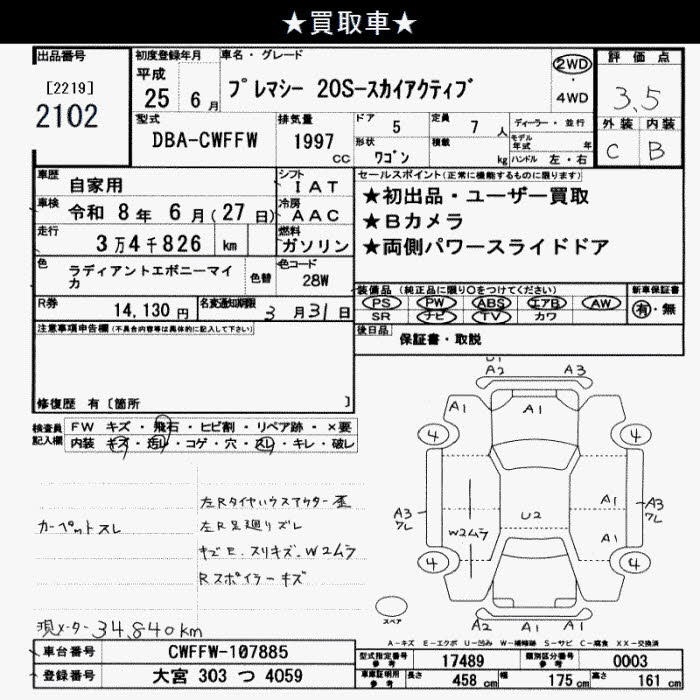 ★買取車★
出品番号
[2219]
2102
初度登録年月
平成
25 6月
車名・グレード
プレマシー 20S-スカイアクティブ
2WD
4WD
評価点
3.5
外装 内装
C B
型式
DBA-CWFFW
排気量
1997
cc
ドア 5
定員 7 人
形状 ワゴン
積載 kg
ディーラー・並行
モデル年式 年
ハンドル 左・右
車歴
自家用
車検
令和 8年 6月(27日)
走行
3万4千826 km
色
ラディアントエボニーマイカ
色替
シフト
IAT
冷房
AAC
燃料
ガソリン
色コード
28W
R券
14,130円
名変通知期限
3月31日
セールスポイント(正常に機能するものに限ります)
★初出品・ユーザー買取
★Bカメラ
★両側パワースライドドア
装備品(純正品に限り○をつけてください)
PS PW ABS エアB AW
SR ナビ TV カワ
新車保証書
有・無
後日品
保証書・取説
注意事項申告欄(不具合内容等は具体的に記入して下さい)
修復歴 有〔箇所 〕
検査員記入欄
FW キズ・飛石・ヒビ割・リペア跡・×要
内装 キズ・汚レ・コゲ・穴・スレ・キレ・破レ
カーペットスレ
左Rタイヤハウスアウター歪
左R足廻りズレ
キズE.スリキズ.W2ムラ
Rスポイラーキズ
現メーター34,840km
U1
A2 A3
A1 A1
4 4
A3
ワレ
W2ムラ
U2
A1
A3
ワレ
A1
4 4
A2 A1 A1
スペア
A-キズ E-エクボ U-凹み W-補修跡 S-サビ C-腐食 XX-交換済
車台番号
CWFFW-107885
登録番号
大宮 303 つ 4059
型式指定番号
参考
17489
類別区分番号
参考
0003
車庫証明用
参考
長さ 458 cm
幅 175 cm
高さ 161 cm